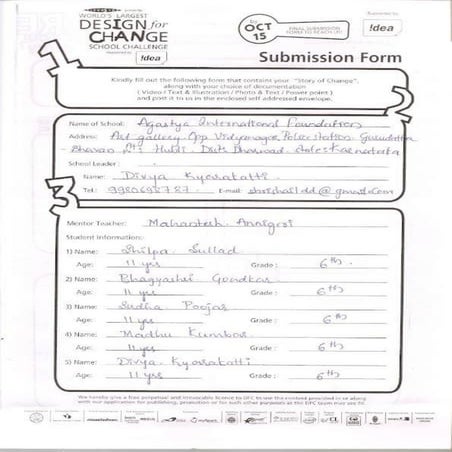 WORLD'S LARGEST
DESIGN for
CHANGE
SCHOOL CHALLENGE
!dea
By
OCT
15
FINAL SUBMISSION
FORM TO REACH US!
Supported by
!dea
Submission Form
1
Kindly fill out the following form that contains your "Story of Change",
along with your choice of documentation
( Video / Text & Illustration / Photo & Text / Power point )
and post it to us in the enclosed self addressed envelope.
2
Name of School: Agastya International Foundation
Address: Art gallery Opp Vidyanagar Police station
Bhavan Hubli Dist: Dharwad state: Karnataka
School Leader :
Name: Divya Kyarakatti
Tel: 9980695787 E-mail: @gmail.com
3
Mentor Teacher: Mahantesh Annigeri
Student Information:
1) Name: Shilpa Sullad
Age: 11 yrs Grade : 6th
2) Name: Bhagyashri Gondkar
Age: 11 yrs Grade : 6th
3) Name: Sudha Poojar
Age: 11 yrs Grade : 6th
4) Name: Madhu Kumbar
Age: 11 yrs Grade : 6th
5) Name: Divya Kyarakatti
Age: 11 yrs Grade : 6th
We hereby give a free perpetual and irrevocable licence to DFC to use the content provided in or along
with our application for publishing, promotion or for such other purposes as the DFC team may see fit.